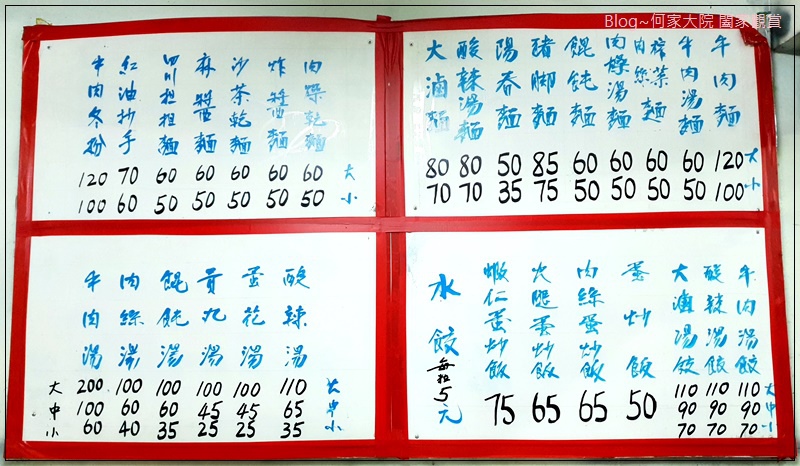 Blog~何家大院 闔家觀賞
大 小
牛肉麵 120 100
牛肉湯麵 60 50
榨菜肉絲麵 60 50
肉燥湯麵 60 50
餛飩麵 60 50
豬腳麵 85 75
陽春麵 50 35
酸辣湯麵 80 70
大滷麵 80 70
大 小
肉燥乾麵 60 50
炸醬麵 60 50
沙茶乾麵 60 50
麻醬麵 60 50
四川担担麵 60 50
紅油抄手 70 60
牛肉冬粉 120 100
大 中 小
牛肉湯餃 110 90 70
酸辣湯餃 110 90 70
大滷湯餃 110 90 70
蛋炒飯 50
肉絲蛋炒飯 65
火腿蛋炒飯 65
蝦仁蛋炒飯 75
水餃 每粒5元
大 中 小
酸辣湯 110 65 35
蛋花湯 100 45 25
貢丸湯 100 45 25
餛飩湯 100 60 35
肉絲湯 100 60 40
牛肉湯 200 100 60
大 中 小